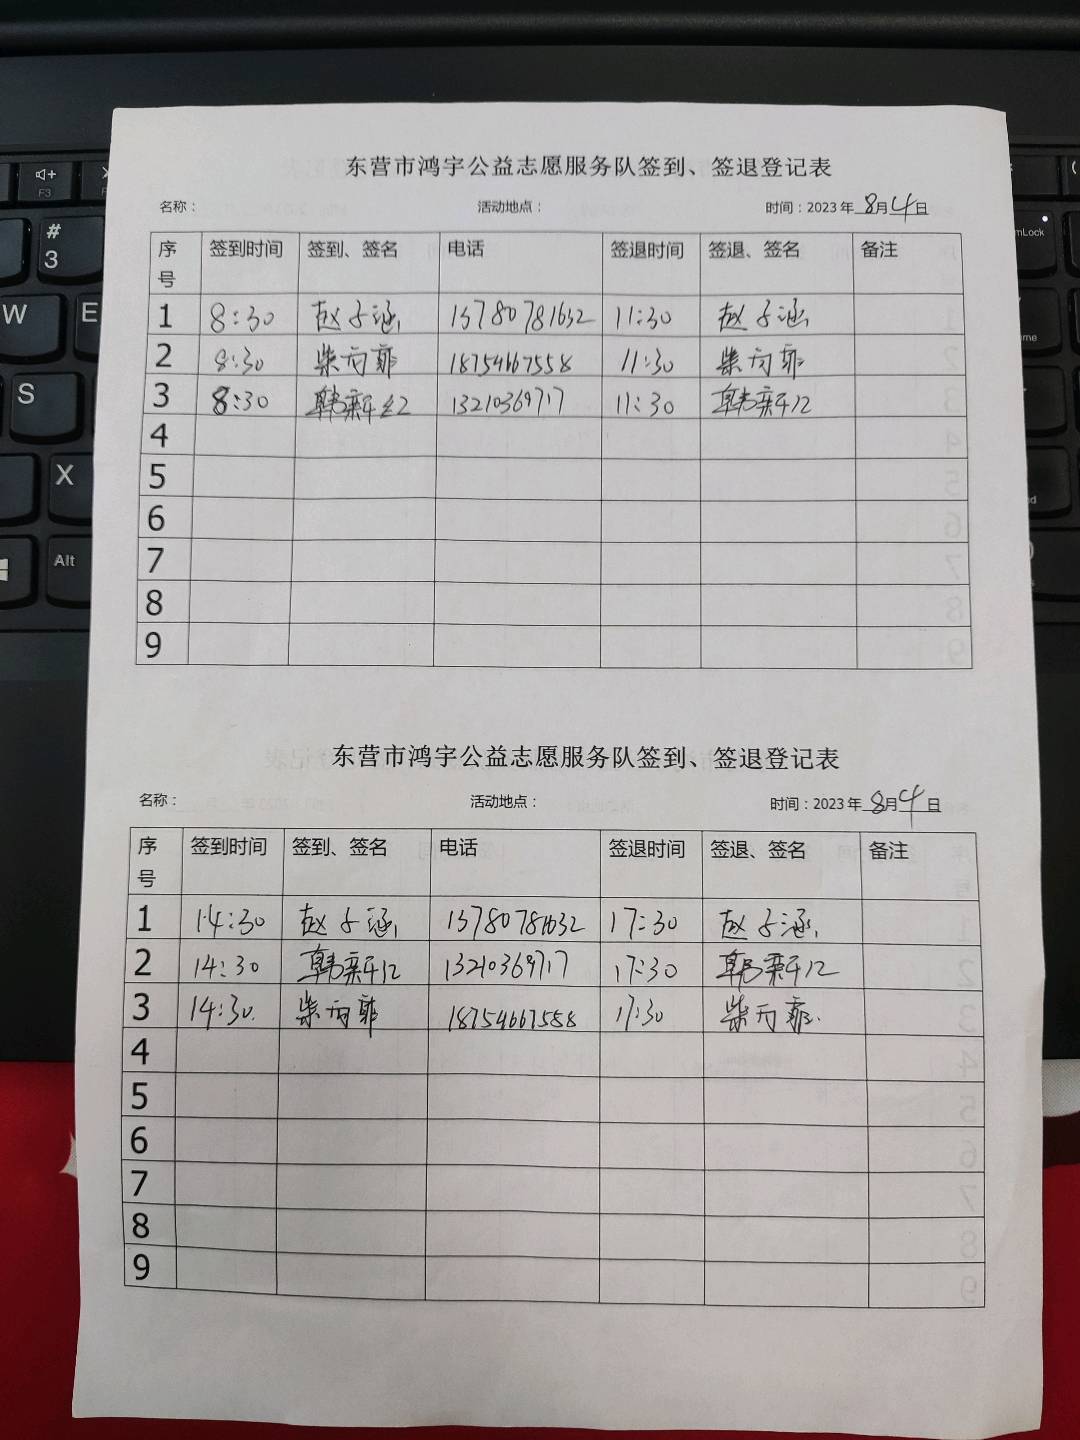 东营市鸿宇公益志愿服务队签到、签退登记表
名称： 活动地点： 时间：2023 年 8月4日
序号 签到时间 签到、签名 电话 签退时间 签退、签名 备注
1 8:30 赵子涵 13780781632 11:30 赵子涵
2 8:30 柴 18754667558 11:30 柴
3 8:30 韩 13210369717 11:30 韩
4
5
6
7
8
9
东营市鸿宇公益志愿服务队签到、签退登记表
名称： 活动地点： 时间：2023 年 8月4日
序号 签到时间 签到、签名 电话 签退时间 签退、签名 备注
1 14:30 赵子涵 13780781632 17:30 赵子涵
2 14:30 韩 13210369717 17:30 韩
3 14:30. 柴 18754667558 17:30 柴
4
5
6
7
8
9
# 3
W E
S
X
Alt
F3